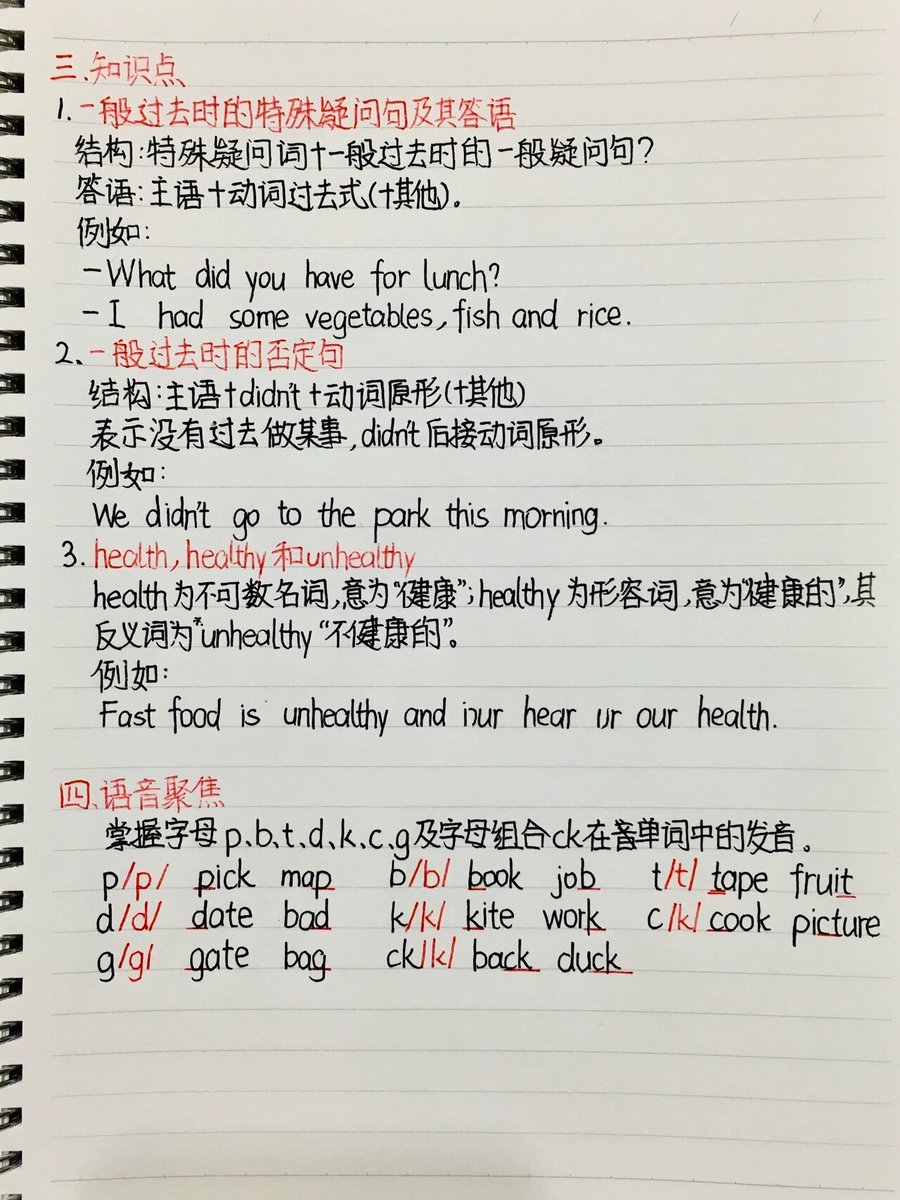 三.知识点
1.一般过去时的特殊疑问句及其答语
结构:特殊疑问词+一般过去时的一般疑问句?
答语:主语+动词过去式(+其他)。
例如:
-What did you have for lunch?
-I had some vegetables, fish and rice.
2.一般过去时的否定句
结构:主语+didn't+动词原形(+其他)
表示没有过去做某事,didn't后接动词原形。
例如:
We didn't go to the park this morning.
3.health, healthy和unhealthy
health为不可数名词,意为"健康";healthy为形容词,意为"健康的",其
反义词为"unhealthy "不健康的"。
例如:
Fast food is unhealthy and hear our health.
四.语音聚焦
掌握字母p、b、t、d、k、c、g及字母组合ck在单词中的发音。
p/p/ pick map b/b/ book job t/t/ tape fruit
d/d/ date bad k/k/ kite work c/k/ cook picture
g/g/ gate bag ck/k/ back duck